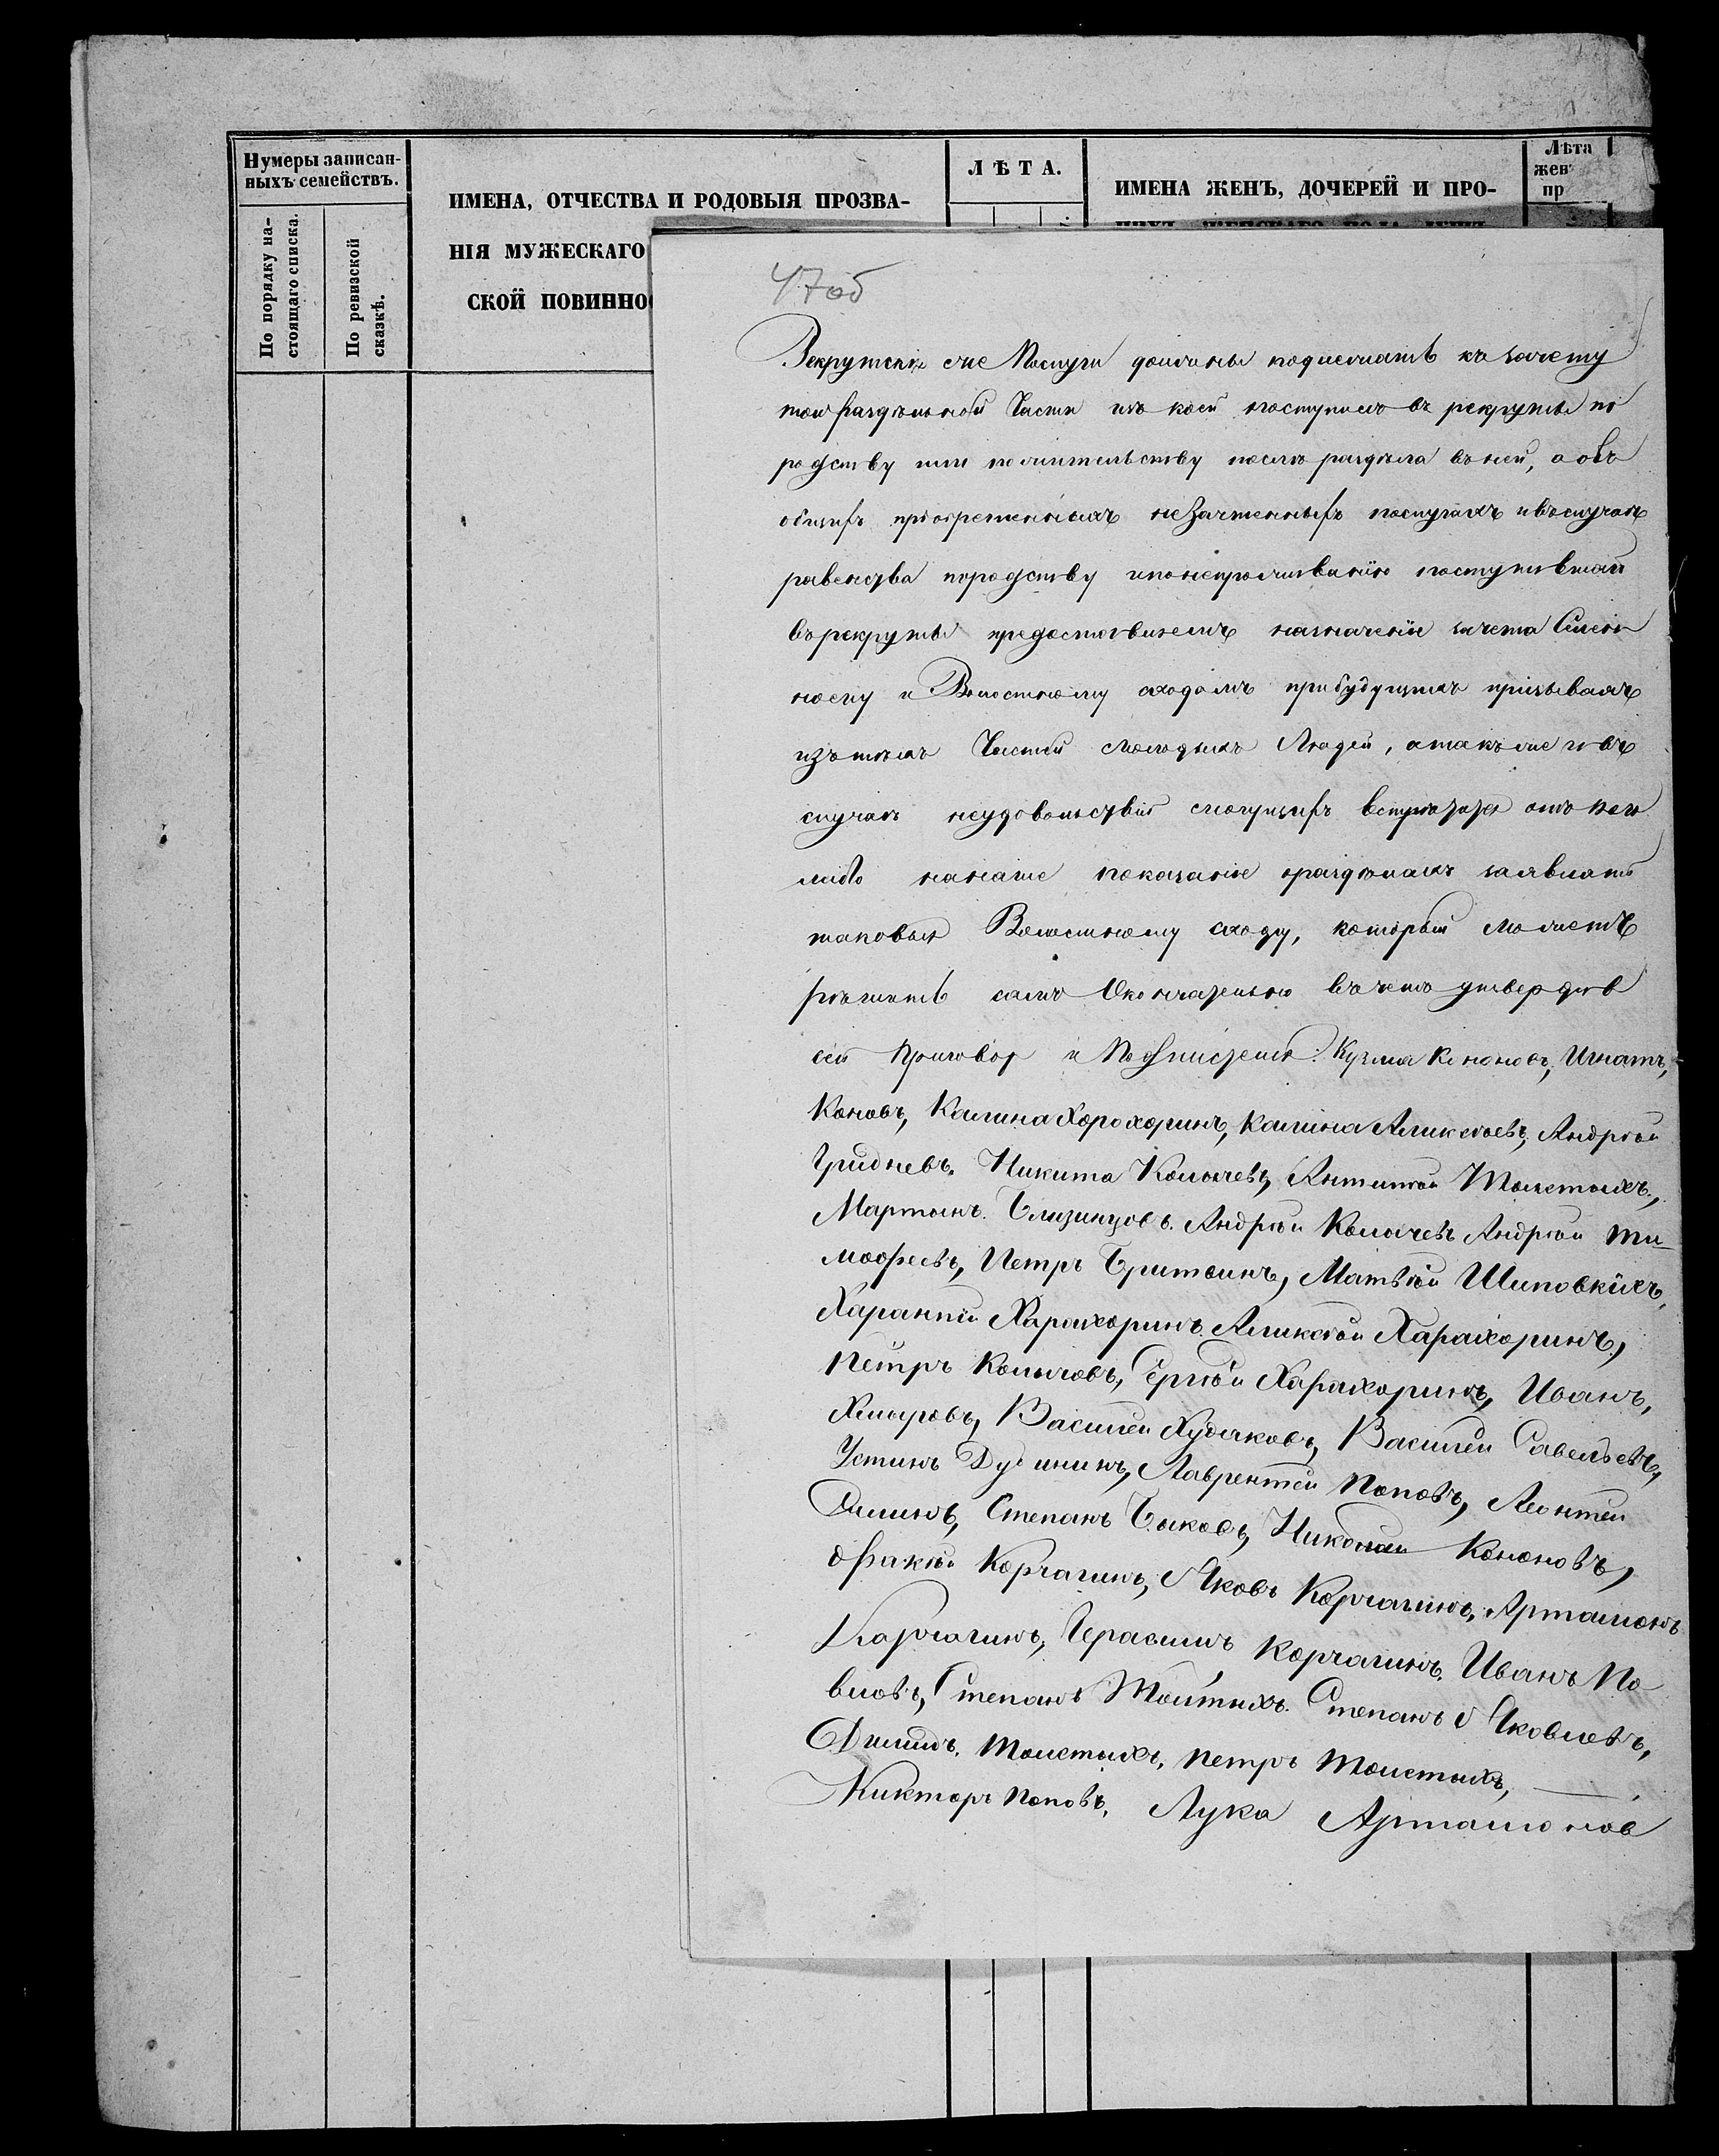 Нумеры записан-
ныхъ семействъ.
По порядку на-
стоящаго списка.
По ревизской
сказкѣ.
ИМЕНА, ОТЧЕСТВА И РОДОВЫЯ ПРОЗВА-
НІЯ МУЖЕСКАГО
СКОЙ ПОВИННО
ЛѢТА.
ИМЕНА ЖЕНЪ, ДОЧЕРЕЙ И ПРО-
Лѣта
жен
пр
47об
Рекрутскія же Послуги должны подлежать къ зачету
той раздѣльной Части изъ коей поступилъ въ рекруты по
родству или по жительству послѣ раздѣла въ ней, а объ
общихъ пріобретенныхъ незачтенныхъ послугахъ и въ случаѣ
равенства породству и по непроживанію поступившаго
въ рекруты предоставляемъ назначеніе зачета Селен
ному и Волостному сходамъ при будущихъ призывахъ
изъ тѣхъ Частей молодыхъ Людей, а также и въ
случаѣ неудовольствія могущихъ встретится отъ кого
либо на наше показаніе о раздѣлахъ заявлять
таковыя Волостному сходу, который можетъ
рѣшить самъ Окончательно въ чемъ утвердивъ
сей Приговоръ и Подписуемся: Кузма Кононовъ, Игнатъ,
Коновъ, Калина Хорохоринъ, Калина Аликсѣевъ, Андрѣй
Гридневъ. Никита Колычевъ, Антипъ Толстыхъ,
Мартынъ. Близинцовъ. Андрѣй Колычевъ Андрѣй Ти-
мофеевъ, Петръ Бритвинъ, Матвѣй Шиповкихъ,
Харанпій Харахоринъ. Аликсѣй Харахоринъ,
Петръ Колычовъ, Сергѣй Харахоринъ, Иванъ,
Хмыровъ, Василей Худяковъ, Василей Савельевъ,
Устинъ Дубининъ, Лаврентей Поповъ, Леонтей
Филинъ, Степанъ Быковъ, Николай Кононовъ,
Корчагинъ, Яковъ Корчагинъ, Артамонъ
Корчагинъ, Герасимъ Корчагинъ. Иванъ Па
вловъ, Степанъ Толстыхъ. Степанъ Яковлевъ,
Филипъ. Толстыхъ, Петръ Толстыхъ,
Никторъ Поповъ, Лука Артамонов